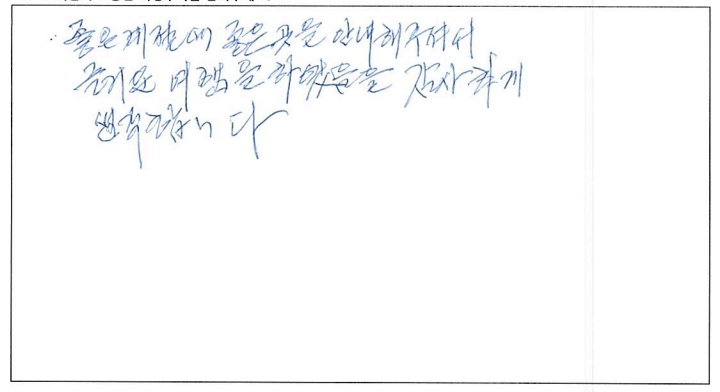 좋은 계절에 좋은 곳을 안내해주셔서
즐거운 여행을 하였음을 감사하게
생각합니다